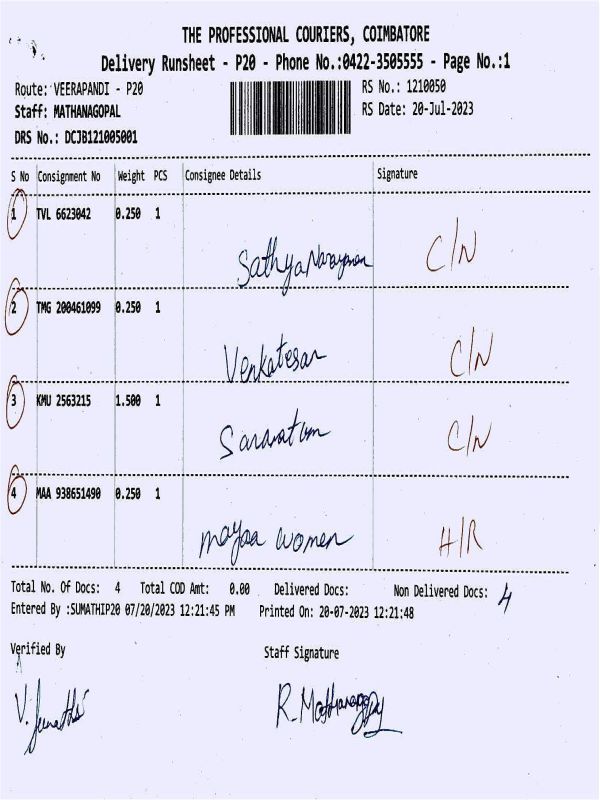 THE PROFESSIONAL COURIERS, COIMBATORE
Delivery Runsheet - P20 - Phone No.:0422-3505555 - Page No.:1
Route: VEERAPANDI - P20 RS No.: 1210050
Staff: MATHANAGOPAL RS Date: 20-Jul-2023
DRS No.: DCJB121005001
S No Consignment No Weight PCS Consignee Details Signature
1 TVL 6623042 0.250 1
Sathya Narayanan C/N
2 TMG 200461099 0.250 1
Venkatesan C/N
3 KMU 2563215 1.500 1
C/N
4 MAA 938651490 0.250 1
mayaa women H/R
Total No. Of Docs: 4 Total COD Amt: 0.00 Delivered Docs: Non Delivered Docs: 4
Entered By :SUMATHIP20 07/20/2023 12:21:45 PM Printed On: 20-07-2023 12:21:48
Verified By Staff Signature
R. Mathanagopal